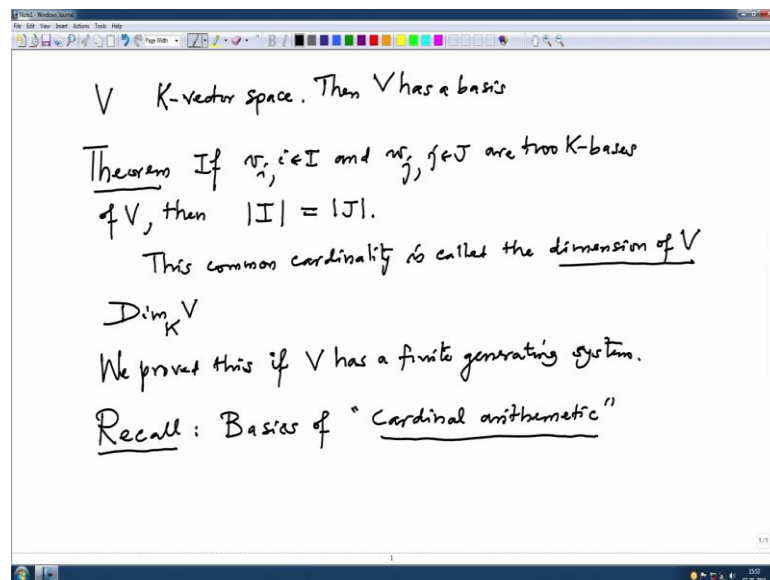 Note1 - Windows Journal
File Edit View Insert Actions Tools Help
Page Width
V K-vector space. Then V has a basis
Theorem If v_i, i∈I and w_j, j∈J are two K-bases
of V, then |I| = |J|.
This common cardinality is called the dimension of V
Dim_K V
We proved this if V has a finite generating system.
Recall : Basics of "Cardinal arithmetic"
1/1
1
15:53